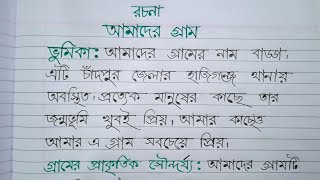 রচনা
আমাদের গ্রাম
ভূমিকা: আমাদের গ্রামের নাম বাড্ডা,
এটি চাঁদপুর জেলার হাজিগঞ্জ থানায়
অবস্থিত, প্রত্যেক মানুষের কাছে তার
জন্মভূমি খুবই প্রিয়, আমার কাছেও
আমার এ গ্রাম সবচেয়ে প্রিয়,
গ্রামের প্রাকৃতিক সৌন্দর্য্য: আমাদের গ্রামটি